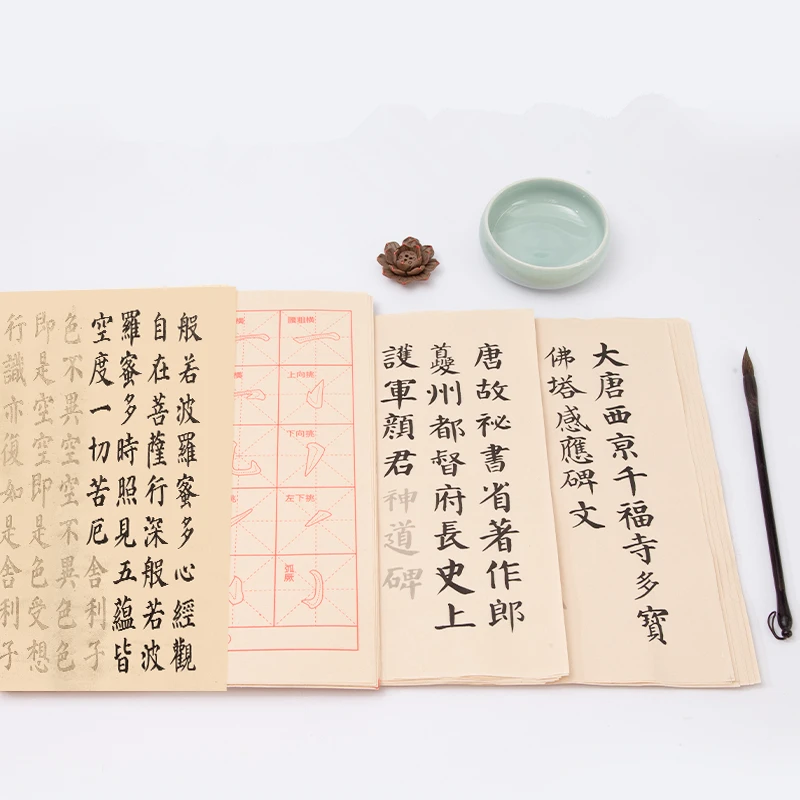 般若波羅蜜多心經觀
自在菩薩行深般若波
羅蜜多時照見五蘊皆
空度一切苦厄舍利子
色不異空空不異色色
即是空空即是色受想
行識亦復如是舍利子
腰粗橫
上向挑
下向挑
左下挑
唐故祕書省著作郎
夔州都督府長史上
護軍顏君神道碑
大唐西京千福寺多寶
佛塔感應碑文